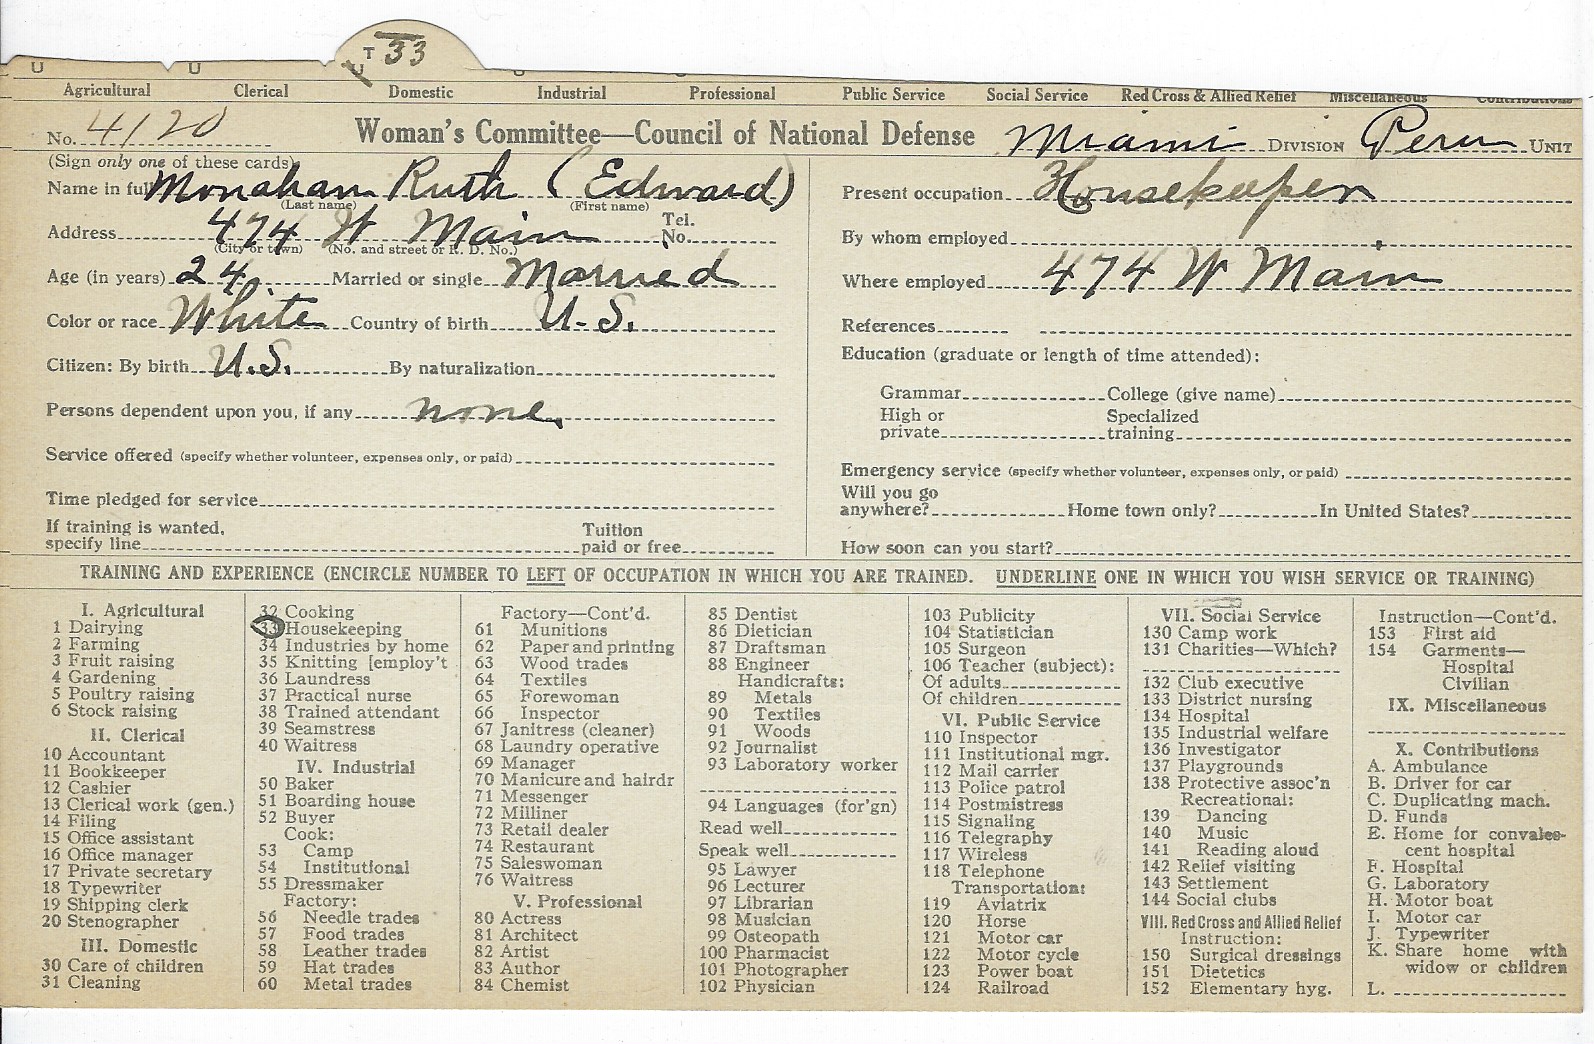 T 33
U U U
Agricultural Clerical Domestic Industrial Professional Public Service Social Service Red Cross & Allied Relief Miscellaneous Contributions
No. 4120 Woman's Committee—Council of National Defense Miami DIVISION Peru UNIT
(Sign only one of these cards)
Name in full Monahan Ruth (Edward)
(Last name) (First name)
Address 474 W Main Tel. No.
(City or town) (No. and street or R. D. No.)
Age (in years) 24 Married or single Married
Color or race White Country of birth U.S.
Citizen: By birth U.S. By naturalization
Persons dependent upon you, if any none
Service offered (specify whether volunteer, expenses only, or paid)
Time pledged for service
If training is wanted, specify line Tuition paid or free
Present occupation Housekeeper
By whom employed
Where employed 474 W Main
References
Education (graduate or length of time attended):
Grammar College (give name)
High or private Specialized training
Emergency service (specify whether volunteer, expenses only, or paid)
Will you go anywhere? Home town only? In United States?
How soon can you start?
TRAINING AND EXPERIENCE (ENCIRCLE NUMBER TO LEFT OF OCCUPATION IN WHICH YOU ARE TRAINED. UNDERLINE ONE IN WHICH YOU WISH SERVICE OR TRAINING)
I. Agricultural
1 Dairying
2 Farming
3 Fruit raising
4 Gardening
5 Poultry raising
6 Stock raising
II. Clerical
10 Accountant
11 Bookkeeper
12 Cashier
13 Clerical work (gen.)
14 Filing
15 Office assistant
16 Office manager
17 Private secretary
18 Typewriter
19 Shipping clerk
20 Stenographer
III. Domestic
30 Care of children
31 Cleaning
32 Cooking
33 Housekeeping
34 Industries by home
35 Knitting [employ't
36 Laundress
37 Practical nurse
38 Trained attendant
39 Seamstress
40 Waitress
IV. Industrial
50 Baker
51 Boarding house
52 Buyer
Cook:
53 Camp
54 Institutional
55 Dressmaker
Factory:
56 Needle trades
57 Food trades
58 Leather trades
59 Hat trades
60 Metal trades
Factory—Cont'd.
61 Munitions
62 Paper and printing
63 Wood trades
64 Textiles
65 Forewoman
66 Inspector
67 Janitress (cleaner)
68 Laundry operative
69 Manager
70 Manicure and hairdr
71 Messenger
72 Milliner
73 Retail dealer
74 Restaurant
75 Saleswoman
76 Waitress
V. Professional
80 Actress
81 Architect
82 Artist
83 Author
84 Chemist
85 Dentist
86 Dietician
87 Draftsman
88 Engineer
Handicrafts:
89 Metals
90 Textiles
91 Woods
92 Journalist
93 Laboratory worker
94 Languages (for'gn)
Read well
Speak well
95 Lawyer
96 Lecturer
97 Librarian
98 Musician
99 Osteopath
100 Pharmacist
101 Photographer
102 Physician
103 Publicity
104 Statistician
105 Surgeon
106 Teacher (subject):
Of adults
Of children
VI. Public Service
110 Inspector
111 Institutional mgr.
112 Mail carrier
113 Police patrol
114 Postmistress
115 Signaling
116 Telegraphy
117 Wireless
118 Telephone
Transportation:
119 Aviatrix
120 Horse
121 Motor car
122 Motor cycle
123 Power boat
124 Railroad
VII. Social Service
130 Camp work
131 Charities—Which?
132 Club executive
133 District nursing
134 Hospital
135 Industrial welfare
136 Investigator
137 Playgrounds
138 Protective assoc'n
Recreational:
139 Dancing
140 Music
141 Reading aloud
142 Relief visiting
143 Settlement
144 Social clubs
VIII. Red Cross and Allied Relief
Instruction:
150 Surgical dressings
151 Dietetics
152 Elementary hyg.
Instruction—Cont'd.
153 First aid
154 Garments—
Hospital
Civilian
IX. Miscellaneous
X. Contributions
A. Ambulance
B. Driver for car
C. Duplicating mach.
D. Funds
E. Home for convales-
cent hospital
F. Hospital
G. Laboratory
H. Motor boat
I. Motor car
J. Typewriter
K. Share home with
widow or children
L.